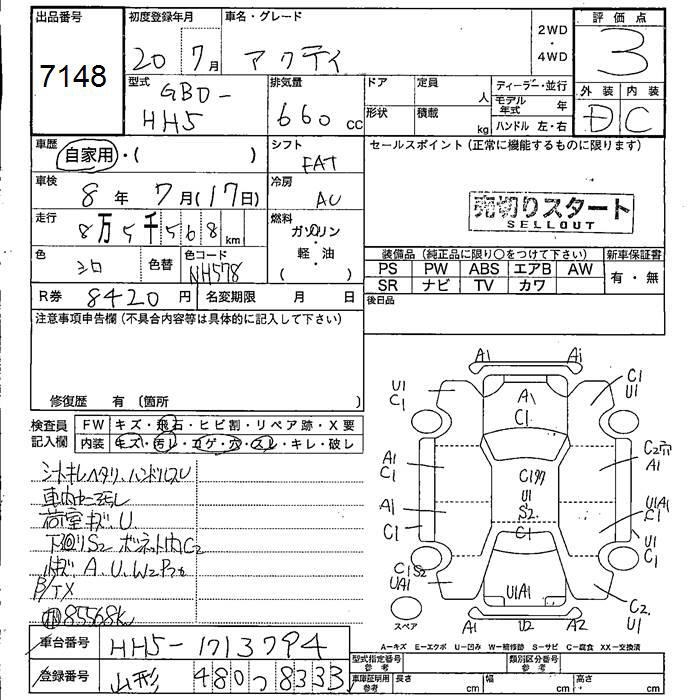 出品番号
7148
初度登録年月
20 7月
車名・グレード
アクティ
2WD
・
4WD
評価点
3
型式
GBD-
HH5
排気量
660 cc
ドア
定員
人
形状
積載
kg
ディーラー・並行
モデル年式 年
ハンドル 左・右
外装 内装
D C
車歴
自家用・( )
シフト
FAT
セールスポイント(正常に機能するものに限ります)
車検
8年 7月(17日)
冷房
AC
売切りスタート
SELLOUT
走行
8万5千568km
燃料
ガソリン
・
軽・油
( )
色
シロ
色替
色コード
NH578
装備品(純正品に限り○をつけて下さい)
新車保証書
PS PW ABS エアB AW
SR ナビ TV カワ
有・無
R券 8420円
名変期限 月 日
後日品
注意事項申告欄(不具合内容等は具体的に記入して下さい)
修復歴 有(箇所 )
検査員記入欄
FW キズ・飛石・ヒビ割・リペア跡・X要
内装 キズ・汚レ・コゲ・穴・スレ・キレ・破レ
シートキレ ヘタリ、ハンドルスレ
荷室キズ U
下回りS2 ボンネット内C2
85568k
A1
A1
U1
C1
C1
U1
A1
C1
A1
C1
C2穴
A1
C1
U1
S2
C1
A1
C1
U1A1
C1
U1
C1
C1 S2
UA1
U1A1
C2
U1
スペア
A1
U2
A2
A-キズ E-エクボ U-凹み W-補修跡 S-サビ C-腐食 XX-交換済
車台番号 HH5-1713794
登録番号 山形 480つ8333
型式指定番号
参考
類別区分番号
参考
車庫証明用
参考
長さ cm
幅 cm
高さ cm